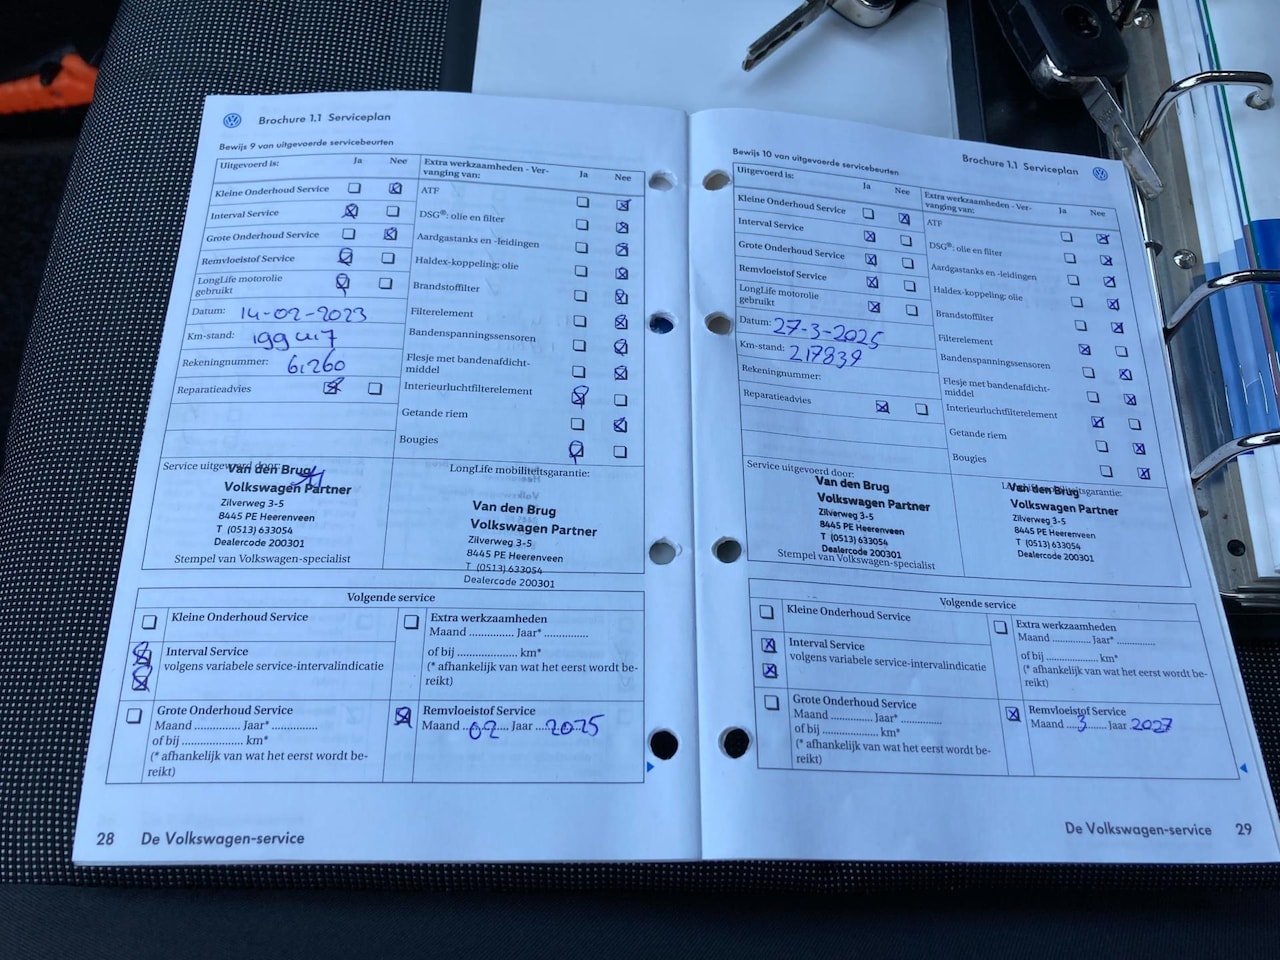 Brochure 1.1 Serviceplan
Bewijs 9 van uitgevoerde servicebeurten
Uitgevoerd is: Ja Nee
Kleine Onderhoud Service
Interval Service
Grote Onderhoud Service
Remvloeistof Service
LongLife motorolie
gebruikt
Datum: 14-02-2023
Km-stand:
Rekeningnummer: 61260
Reparatieadvies
Extra werkzaamheden - Ver-
vanging van: Ja Nee
ATF
DSG®: olie en filter
Aardgastanks en -leidingen
Haldex-koppeling: olie
Brandstoffilter
Filterelement
Bandenspanningssensoren
Flesje met bandenafdicht-
middel
Interieurluchtfilterelement
Getande riem
Bougies
Service uitgevoerd door:
Van den Brug
Volkswagen Partner
Zilverweg 3-5
8445 PE Heerenveen
T (0513) 633054
Dealercode 200301
Stempel van Volkswagen-specialist
LongLife mobiliteitsgarantie:
Van den Brug
Volkswagen Partner
Zilverweg 3-5
8445 PE Heerenveen
T (0513) 633054
Dealercode 200301
Volgende service
Kleine Onderhoud Service
Interval Service
volgens variabele service-intervalindicatie
Grote Onderhoud Service
Maand ............... Jaar* ...............
of bij .................... km*
(* afhankelijk van wat het eerst wordt be-
reikt)
Extra werkzaamheden
Maand ............... Jaar* ...............
of bij .................... km*
(* afhankelijk van wat het eerst wordt be-
reikt)
Remvloeistof Service
Maand 02 Jaar 2025
28 De Volkswagen-service
Brochure 1.1 Serviceplan
Bewijs 10 van uitgevoerde servicebeurten
Uitgevoerd is: Ja Nee
Kleine Onderhoud Service
Interval Service
Grote Onderhoud Service
Remvloeistof Service
LongLife motorolie
gebruikt
Datum: 27-3-2025
Km-stand: 217839
Rekeningnummer:
Reparatieadvies
Extra werkzaamheden - Ver-
vanging van: Ja Nee
ATF
DSG®: olie en filter
Aardgastanks en -leidingen
Haldex-koppeling: olie
Brandstoffilter
Filterelement
Bandenspanningssensoren
Flesje met bandenafdicht-
middel
Interieurluchtfilterelement
Getande riem
Bougies
Service uitgevoerd door:
Van den Brug
Volkswagen Partner
Zilverweg 3-5
8445 PE Heerenveen
T (0513) 633054
Dealercode 200301
Stempel van Volkswagen-specialist
Van den Brug
Volkswagen Partner
Zilverweg 3-5
8445 PE Heerenveen
T (0513) 633054
Dealercode 200301
Volgende service
Kleine Onderhoud Service
Interval Service
volgens variabele service-intervalindicatie
Grote Onderhoud Service
Maand ............... Jaar* ...............
of bij .................... km*
(* afhankelijk van wat het eerst wordt be-
reikt)
Extra werkzaamheden
Maand ............... Jaar* ...............
of bij .................... km*
(* afhankelijk van wat het eerst wordt be-
reikt)
Remvloeistof Service
Maand 3 Jaar 2027
De Volkswagen-service 29